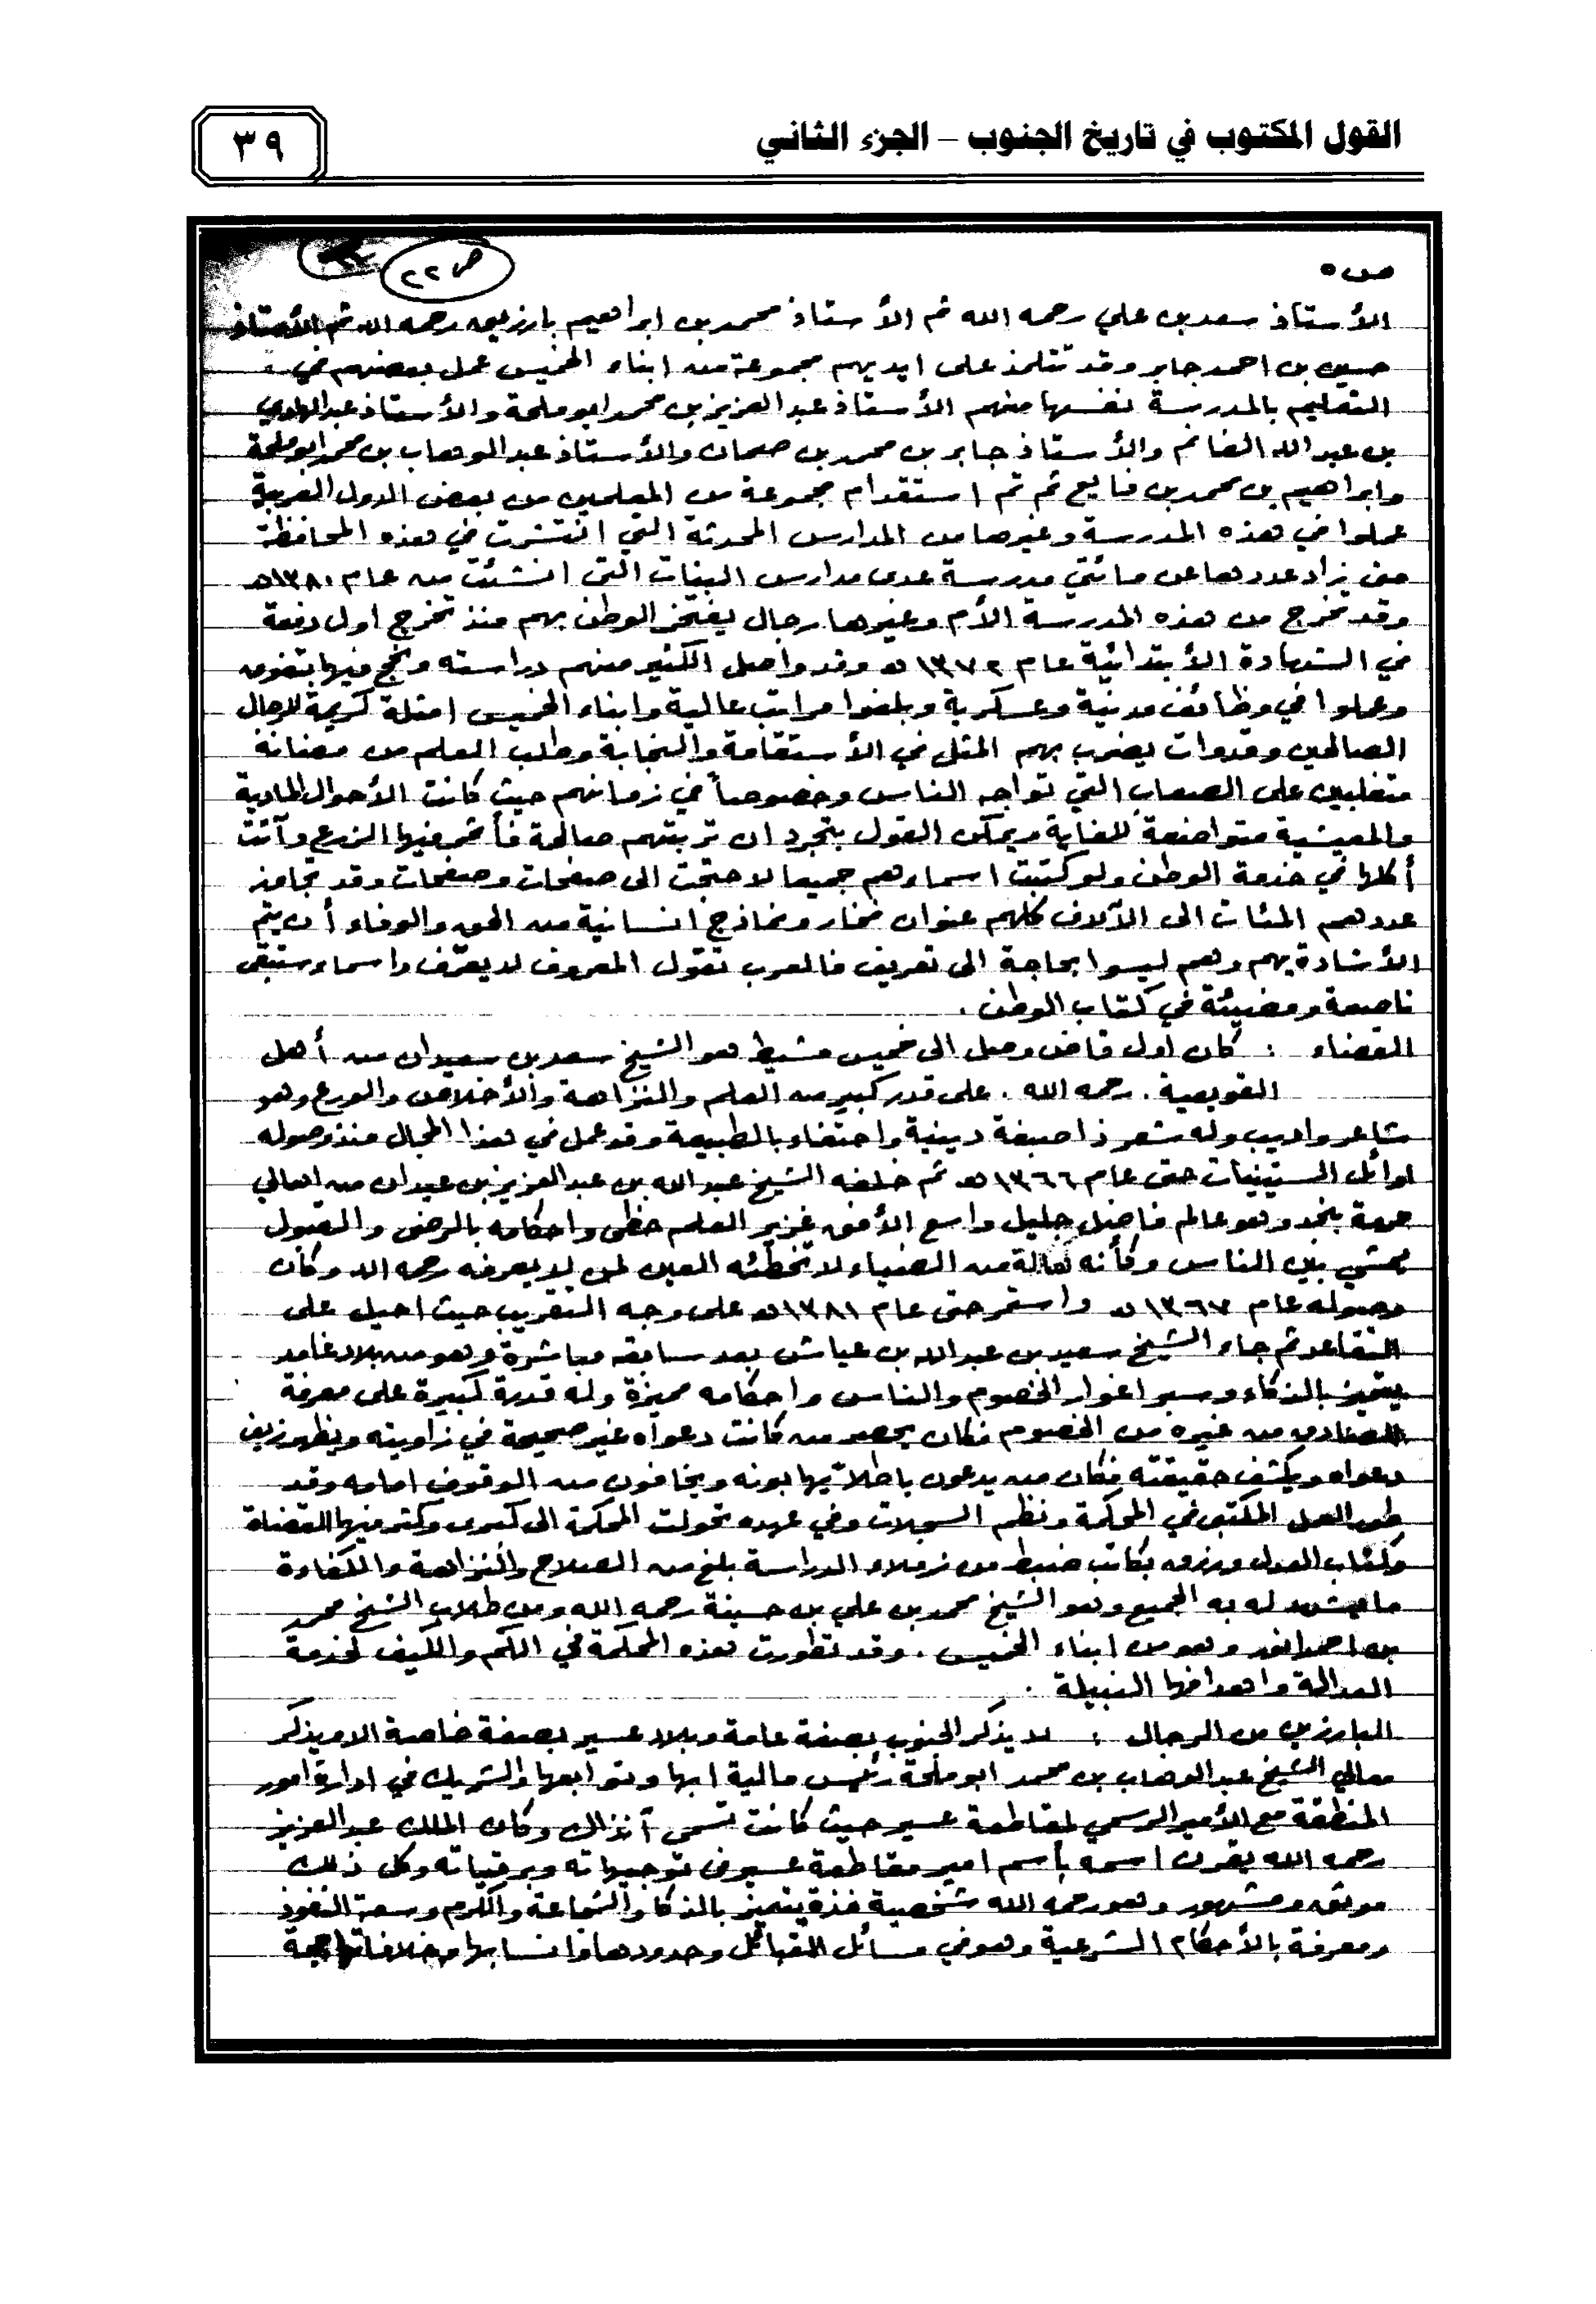 القول المكتوب في تاريخ الجنوب – الجزء الثاني
٣٩
ص ٥
ص ٢٢
الأستاذ سعد بن علي رحمه الله ثم الأستاذ محمد بن ابراهيم بارزيق رحمه الله ثم الأستاذ
حسين بن احمد جابر وقد تتلمذ على ايديهم مجموعة من ابناء الخميس عمل بعضهم في
التعليم بالمدرسة نفسها منهم الأستاذ عبد العزيز بن محمد ابو ملحة والأستاذ عبد الهادي
بن عبد الله الغانم والأستاذ جابر بن محمد بن صمان والأستاذ عبد الوهاب بن محمد ابو ملحة
وابراهيم بن محمد بن فايع ثم تم استقدام مجموعة من المعلمين من بعض الدول العربية
عملوا في هذه المدرسة وغيرها من المدارس المحدثة التي انتشرت في هذه المحافظة
حتى زاد عددها عن مائتي مدرسة عدى مدارس البنات التي انشئت من عام ١٣٨٠هـ
وقد تخرج من هذه المدرسة الأم وغيرها رجال يفتخر الوطن بهم منذ تخرج اول دفعة
في الشهادة الأبتدائية عام ١٣٧٢هـ وقد واصل الكثير منهم دراسته ونجح فيها بتفوق
وعملوا في وظائف مدنية وعسكرية وبلغوا مراتب عالية وابناء الخميس امثلة كريمة للرجال
الصالحين وقدوات يضرب بهم المثل في الأستقامة والنجابة وطلب العلم من مضانه
متغلبين على الصعاب التي تواجه الناس وخصوصاً في زمانهم حيث كانت الأحوال المادية
والمعيشية متواضعة للغاية ويمكن القول بتجرد ان تربتهم صالحة فأثمر فيها الزرع وآتت
أكلها في خدمة الوطن ولو كتبت اسماءهم جميعا لاحتجت الى صفحات وصفحات وقد تجاوز
عددهم المئات الى الآلاف كلهم عنوان فخار ونماذج انسانية من الحق والوفاء أن يتم
الأشادة بهم وهم ليسوا بحاجة الى تعريف فالعرب تقول المعروف لا يعرّف واسماء ستبقى
ناصعة ومضيئة في كتاب الوطن .
القضاء : كان اول قاض وصل الى خميس مشيط هو الشيخ سعد بن سعيدان من أهل
القويعية . رحمه الله . على قدر كبير من العلم والنزاهة والأخلاص والورع وهو
شاعر واديب وله شعر ذا صبغة دينية واحتفاء بالطبيعة وقد عمل في هذا المجال منذ وصوله
اوائل الستينيات حتى عام ١٣٦٦هـ ثم خلفه الشيخ عبد الله بن عبد العزيز بن عبدان من اهالي
بنجد وهو عالم فاضل جليل واسع الأفق غزير العلم حظى واحكامه بالرضى والقبول
يمشي بين الناس وكأنه هالة من الضياء لا تخطئه العين لمن لا يعرفه رحمه الله وكان
وصوله عام ١٣٦٧هـ واستمر حتى عام ١٣٨١هـ على وجه التقريب حيث احيل على
التقاعد ثم جاء الشيخ سعيد بن عبد الله بن عياش بعد سابقه مباشرة وهو من بلاد غامد
يتميز بالذكاء وسبر اغوار الخصوم والناس واحكامه مميزة وله قدرة كبيرة على معرفة
الصادق من غيره من الخصوم فكان يحصر من كانت دعواه غير صحيحة في زاويته ويظهر زيف
دعواه ويكشف حقيقته فكان من يدعون باطلاً يهابونه ويخافون من الوقوف امامه وقد
طور العمل المكتبي في المحكمة ونظم السجلات وفي عهده تحولت المحكمة الى كبرى وكثر فيها القضاة
وكتاب العدل ورزق بكاتب ضبط من زملاء الدراسة بلغ من الصلاح والنزاهة والكفاءة
ما يشهد له به الجميع وهو الشيخ محمد بن علي بن حسينة رحمه الله ومن طلاب الشيخ محمد
بن احمد انور وهو من ابناء الخميس . وقد تطورت هذه المحكمة في الكم والكيف لخدمة
العدالة واهدافها النبيلة .
البارزين من الرجال : لا يذكر الجنوب بصفة عامة وبلاد عسير بصفة خاصة الا ويذكر
معالي الشيخ عبد الوهاب بن محمد ابو ملحة رئيس مالية ابها وتوابعها والشريك في ادارة امور
المنطقة مع الأمير الرسمي لمقاطعة عسير حيث كانت تسمى آنذاك وكان الملك عبد العزيز
رحمه الله يقرن اسمه بأسم امير مقاطعة عسير في توجيهاته وبرقياته وكل ذلك
موثق ومشهور وهو رحمه الله شخصية فذة يتميز بالذكاء والشجاعة والكرم وسعة النفوذ
ومعرفة بالأحكام الشرعية وهو في مسائل القبائل وحدودها وانسابها وخلافاتها